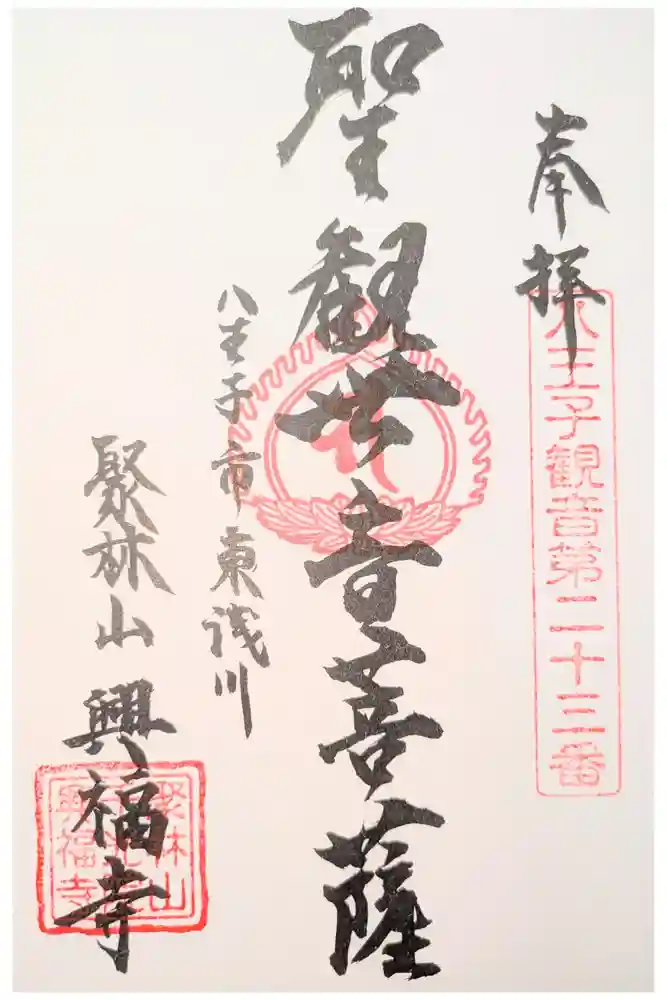 奉拝
八王子観音第二十三番
聖観世音菩薩
八王子市東浅川
聚林山興福寺
聚林山
興福寺